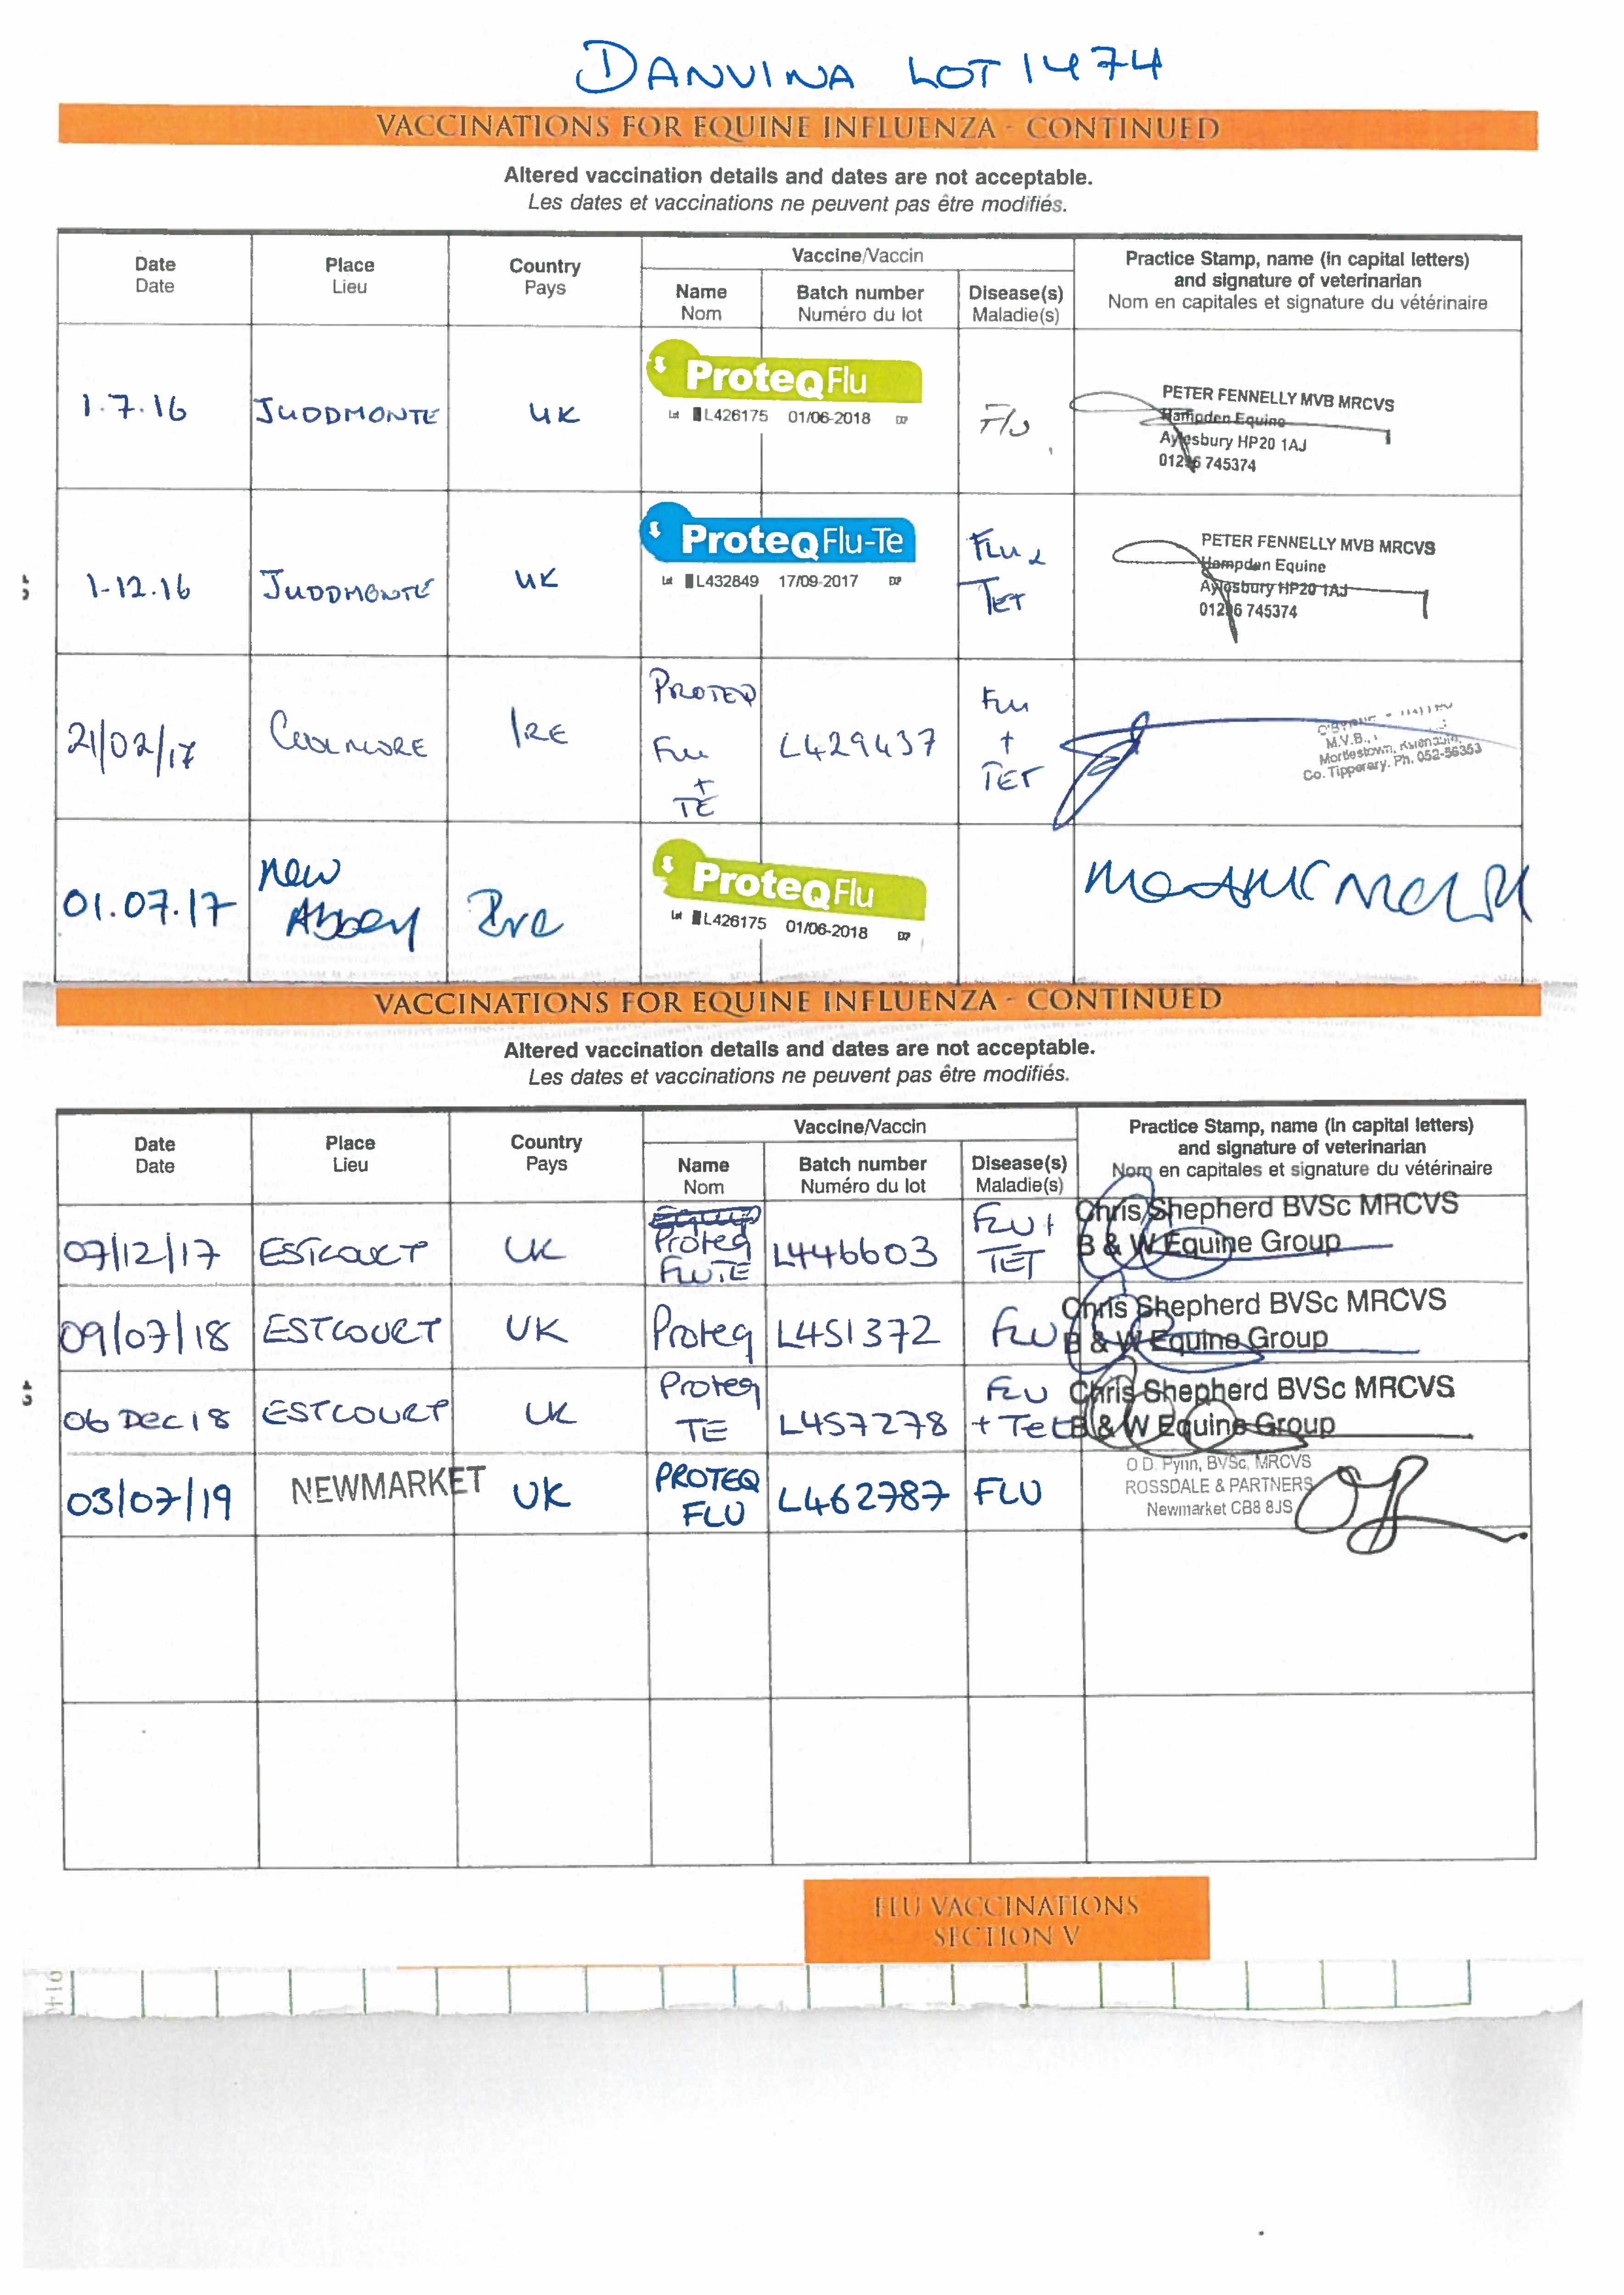 DANVINA LOT 1474
VACCINATIONS FOR EQUINE INFLUENZA - CONTINUED
Altered vaccination details and dates are not acceptable.
Les dates et vaccinations ne peuvent pas être modifiés.
Date Place Country Vaccine/Vaccin Practice Stamp, name (in capital letters)
Date Lieu Pays and signature of veterinarian
Name Batch number Disease(s) Nom en capitales et signature du vétérinaire
Nom Numéro du lot Maladie(s)
1.7.16 JUDDMONTE UK ProteqFlu Flu PETER FENNELLY MVB MRCVS
Lot L426175 01/06-2018 EXP Hampden Equine
Aylesbury HP20 1AJ
01296 745374
1-12.16 JUDDMONTE UK ProteqFlu-Te FLU & PETER FENNELLY MVB MRCVS
Lot L432849 17/09-2017 EXP TET Hampden Equine
Aylesbury HP20 1AJ
01296 745374
21/02/17 COOLMORE IRE PROTEQ L429437 Flu
Flu + M.V.B.,
+ TET Mortlestown,
TE Co. Tipperary. Ph. 052-56353
01.07.17 New Ire ProteqFlu
Abbey Lot L426175 01/06-2018 EXP
VACCINATIONS FOR EQUINE INFLUENZA - CONTINUED
Altered vaccination details and dates are not acceptable.
Les dates et vaccinations ne peuvent pas être modifiés.
Date Place Country Vaccine/Vaccin Practice Stamp, name (in capital letters)
Date Lieu Pays and signature of veterinarian
Name Batch number Disease(s) Nom en capitales et signature du vétérinaire
Nom Numéro du lot Maladie(s)
07/12/17 ESTCOURT UK Proteq L446603 FLU + Chris Shepherd BVSc MRCVS
FLUTE TET B & W Equine Group
09/07/18 ESTCOURT UK Proteq L451372 FLU Chris Shepherd BVSc MRCVS
B & W Equine Group
06 Dec 18 ESTCOURT UK Proteq L457278 FLU Chris Shepherd BVSc MRCVS
TE + Tet B & W Equine Group
03/07/19 NEWMARKET UK PROTEQ L462787 FLU O.D. Pynn, BVSc, MRCVS
FLU ROSSDALE & PARTNERS
Newmarket CB8 8JS
FLU VACCINATIONS
SECTION V